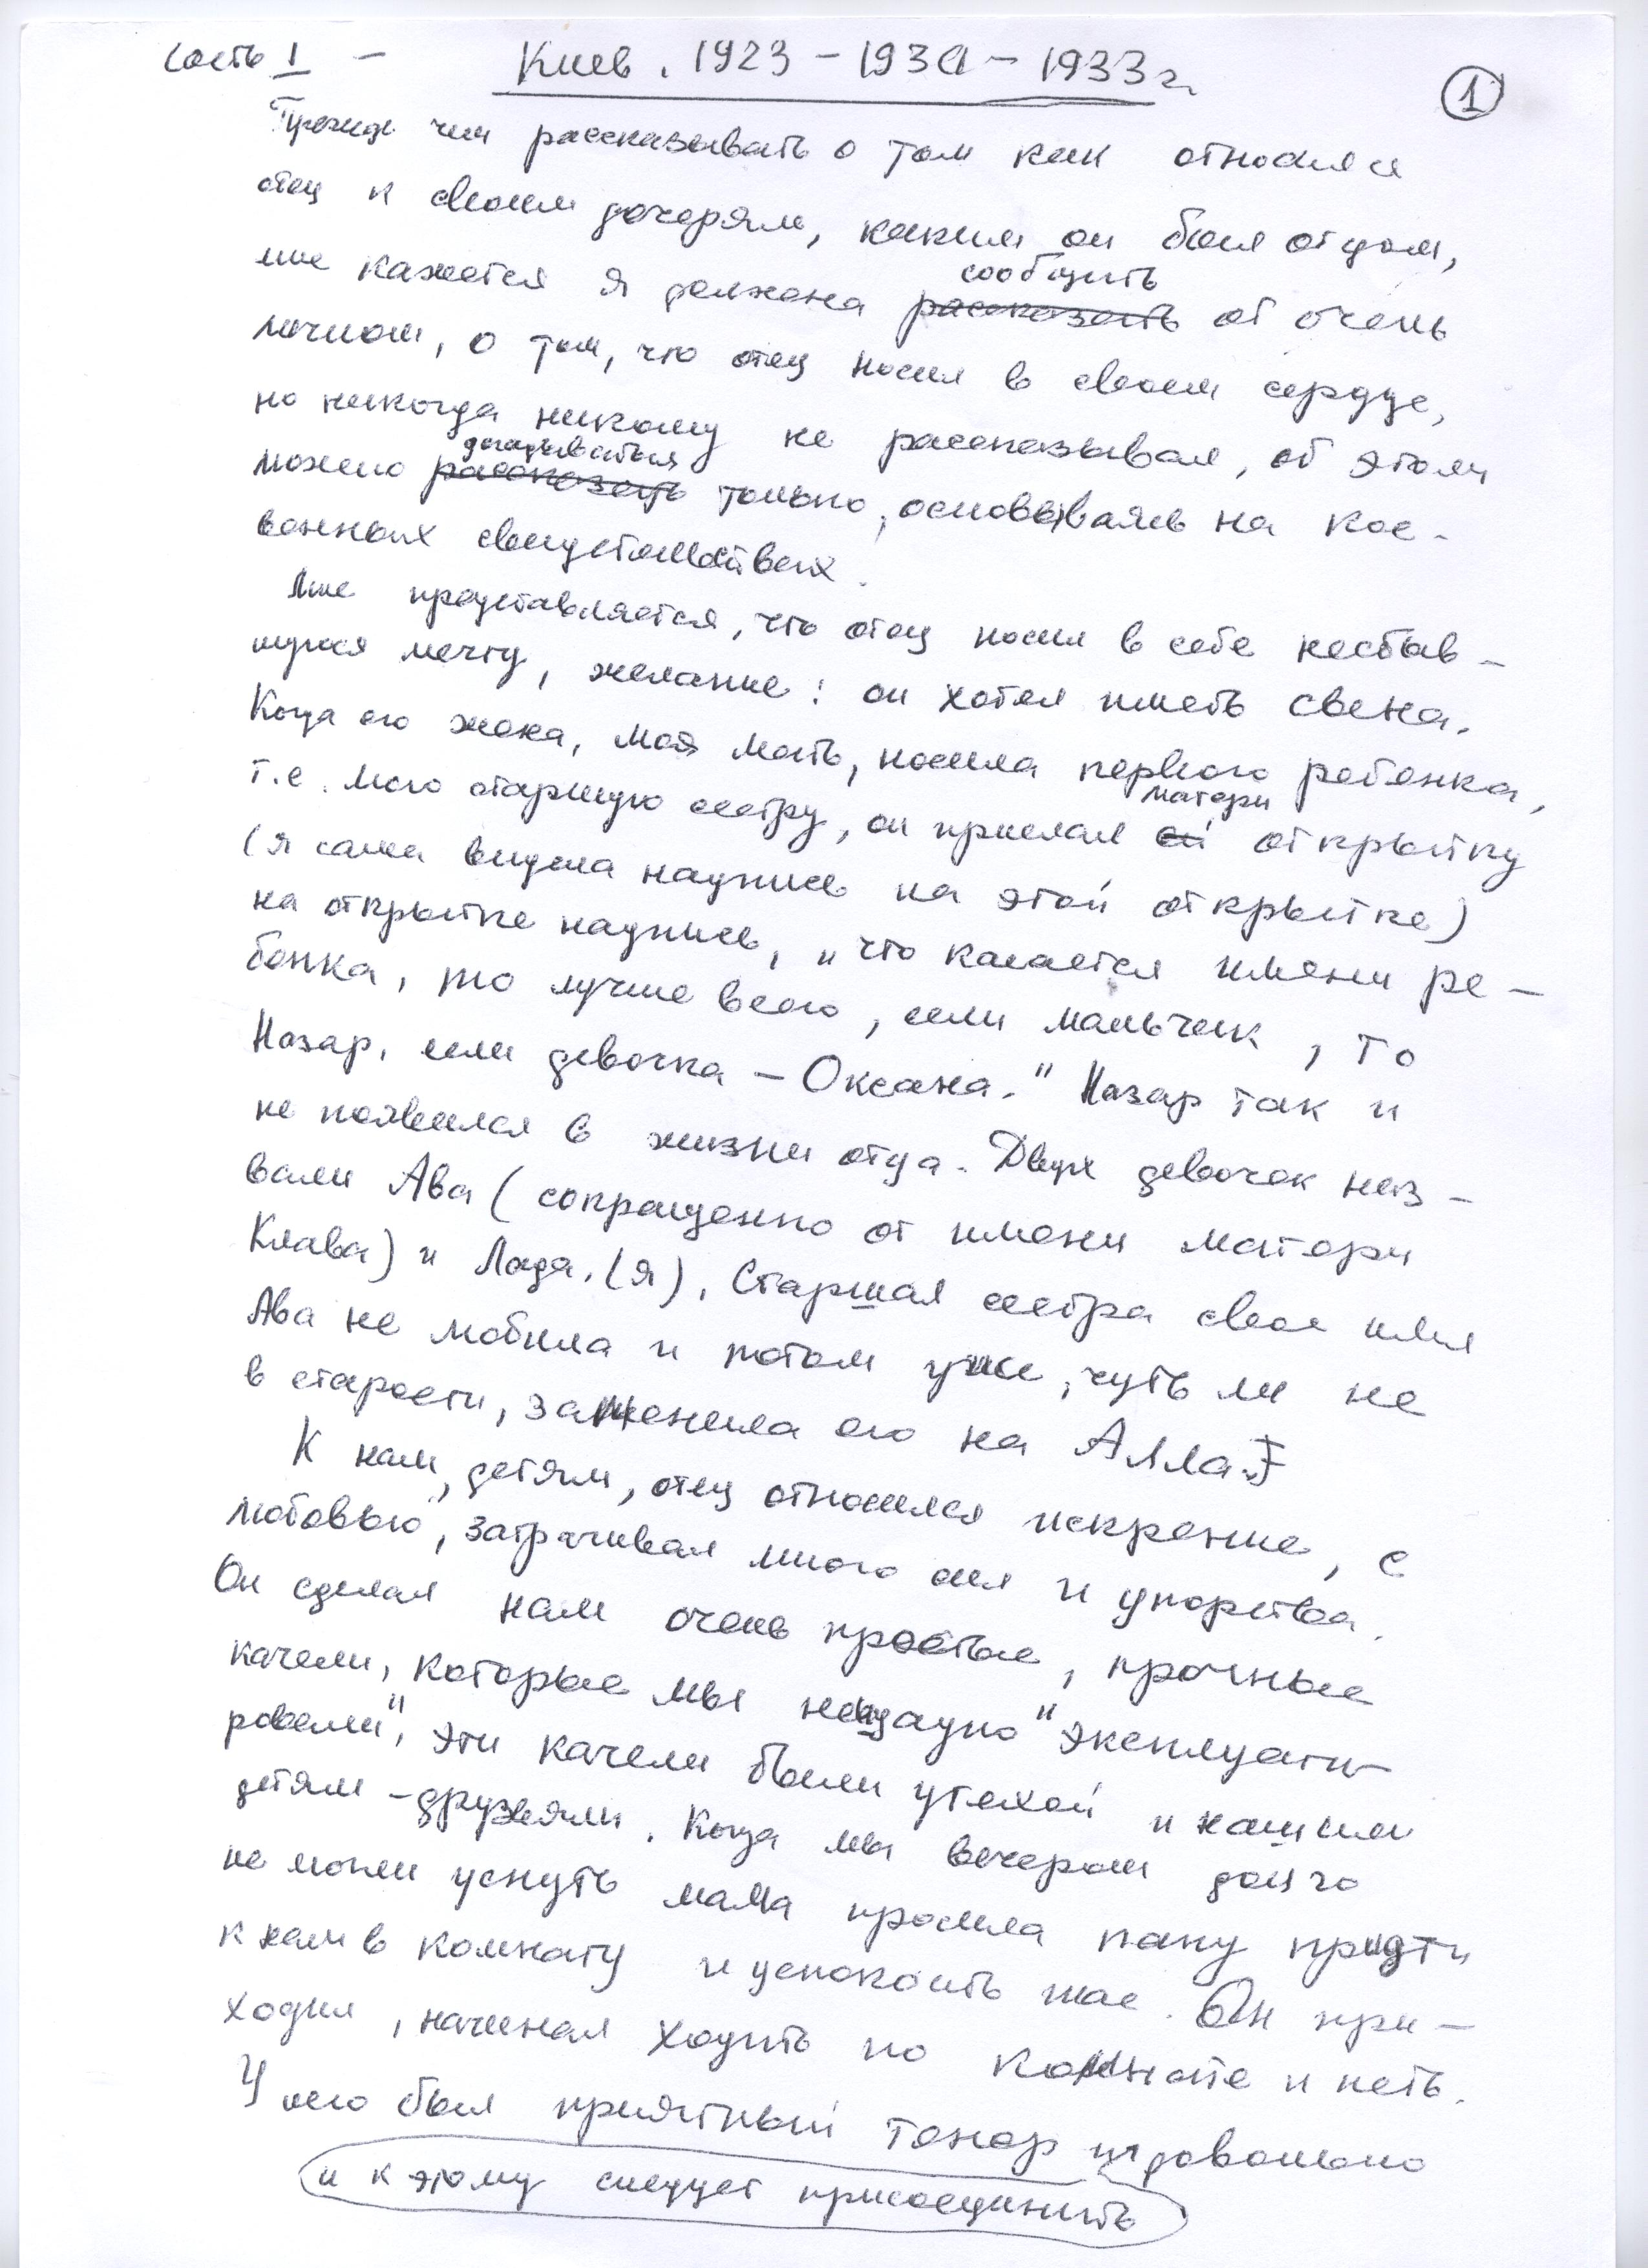 Часть I — Киев. 1923 – 193а – 1933 г.
1
Прежде чем рассказывать о том как относился
отец к своим дочерям, каким он был отцом,
сообщить
мне кажется я должена рассказать об очень
личном, о том, что отец носил в своем сердце,
но никогда никому не рассказывал, об этом
догадываться
можно рассказать только, основываясь на кос-
венных свидетельствах.
Мне представляется, что отец носил в себе несбыв-
шуюся мечту, желание: он хотел иметь сына.
Когда его жена, моя мать, носила первого ребенка,
матери
т.е. мою старшую сестру, он прислал ей открытку
(я сама видела надпись на этой открытке)
на открытке надпись, „что касается имени ре-
бенка, то лучше всего, если мальчик, то
Назар, если девочка – Оксана." Назар так и
не появился в жизни отца. Двух девочек наз-
вали Ава (сокращенно от имени матери
Клава) и Лада. (я). Старшая сестра свое имя
Ава не любила и потом уже, чуть ли не
в старости, заменила его на Алла.
К нам, детям, отец относился искренне, с
любовью, затрачивал много сил и упорства.
Он сделал нам очень простые, прочные
качели, которые мы нещадно "эксплуати-
ровали", эти качели были утехой и нашим
детям-друзьям. Когда мы вечером долго
не могли уснуть мама просила папу придти
к нам в комнату и успокоить нас. Он при-
ходил, начинал ходить по комнате и петь.
У него был приятный тенор и довольно
и к этому следует присоединить